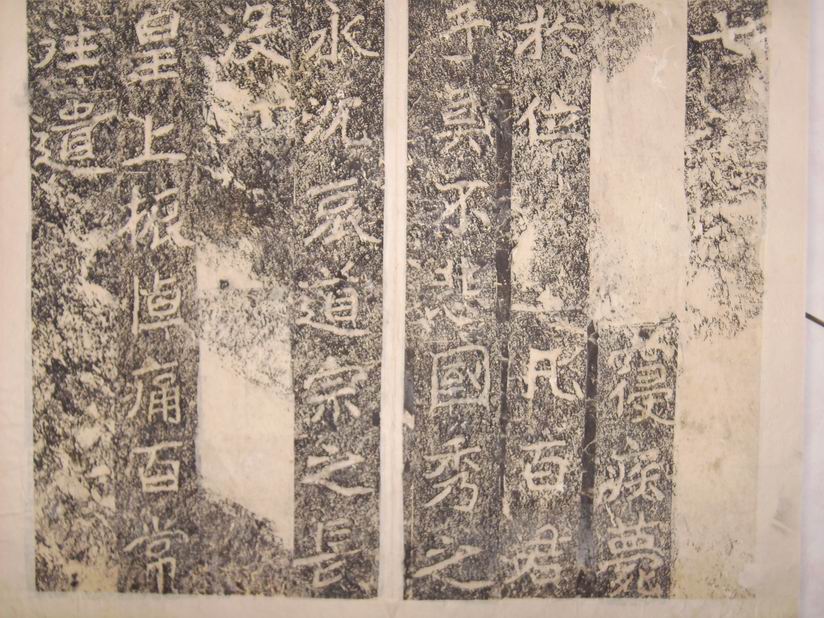 七
寢疾薨
於位凡百君
子莫不悲國秀之
永沈哀道宗之長
沒
皇上振悼痛百常
往遺